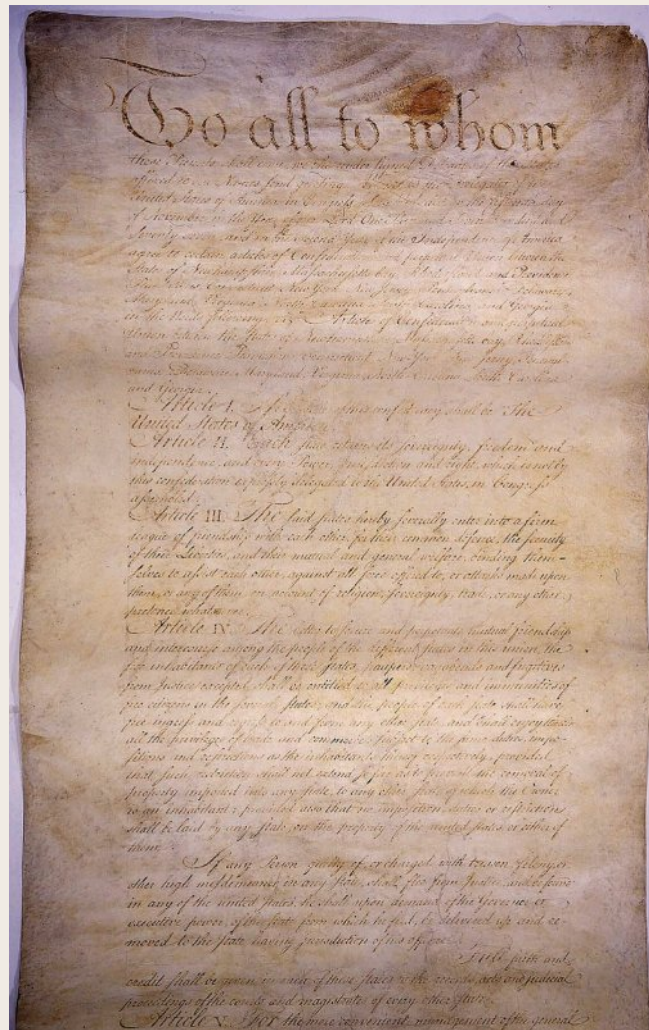 To all to whom
these Presents shall come, we the undersigned Delegates of the States
affixed to our Names send greeting. Whereas the Delegates of the
United States of America in Congress assembled did on the fifteenth day
of November in the Year of our Lord One Thousand Seven Hundred and
Seventy seven, and in the Second Year of the Independence of America
agree to certain articles of Confederation and perpetual Union between the
States of Newhampshire, Massachusetts-bay, Rhodeisland and Providence
Plantations, Connecticut, New York, New Jersey, Pennsylvania, Delaware,
Maryland, Virginia, North-Carolina, South-Carolina, and Georgia
in the Words following, viz. Articles of Confederation and perpetual
Union between the States of Newhampshire, Massachusetts-bay, Rhodeisland
and Providence Plantations, Connecticut, New-York, New-Jersey, Pennsyl-
vania, Delaware, Maryland, Virginia, North-Carolina, South-Carolina
and Georgia.
Article I. The Stile of this confederacy shall be "The
United States of America."
Article II. Each state retains its sovereignty, freedom and
independence, and every Power, Jurisdiction and right, which is not by
this confederation expressly delegated to the United States, in Congress
assembled.
Article III. The said states hereby severally enter into a firm
league of friendship with each other, for their common defence, the security
of their Liberties, and their mutual and general welfare, binding them-
selves to assist each other, against all force offered to, or attacks made upon
them, or any of them, on account of religion, sovereignty, trade, or any other
pretence whatever.
Article IV. The better to secure and perpetuate mutual friendship
and intercourse among the people of the different states in this union, the
free inhabitants of each of these states, paupers, vagabonds and fugitives
from Justice excepted, shall be entitled to all privileges and immunities of
free citizens in the several states; and the people of each state shall have
free ingress and regress to and from any other state, and shall enjoy therein
all the privileges of trade and commerce, subject to the same duties, impo-
sitions and restrictions as the inhabitants thereof respectively, provided
that such restriction shall not extend so far as to prevent the removal of
property imported into any state, to any other state of which the Owner
is an inhabitant; provided also that no imposition, duties or restriction
shall be laid by any state, on the property of the united states, or either of
them.
If any Person guilty of, or charged with treason, felony, or
other high misdemeanor in any state, shall flee from Justice, and be found
in any of the united states, he shall upon demand of the Governor or
executive power, of the state from which he fled, be delivered up and re-
moved to the state having jurisdiction of his offence.
Full faith and
credit shall be given in each of these states to the records, acts and judicial
proceedings of the courts and magistrates of every other state.
Article V. For the more convenient management of the general